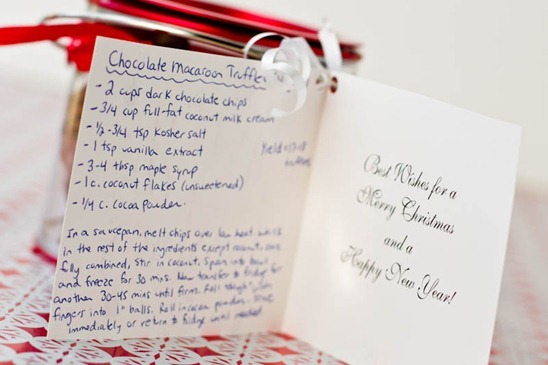 Chocolate Macaroon Truffles
- 2 cups dark chocolate chips
- 3/4 cup full-fat coconut milk cream
- 1/2-3/4 tsp kosher salt
- 1 tsp vanilla extract
Yield =
truffles
- 3-4 tbsp maple syrup
- 1 c. coconut flakes (unsweetened)
- 1/4 c. cocoa powder.
In a saucepan, melt chips over low heat. whisk
in the rest of the ingredients except coconut. once
fully combined, stir in coconut. Spoon into bowl
and freeze for 30 mins. Now transfer to fridge for
another 30-45 mins until firm. Roll "dough" with
fingers into 1" balls. Roll in cocoa powder. Serve
immediately or return to fridge until needed
Best Wishes for a
Merry Christmas
and a
Happy New Year!